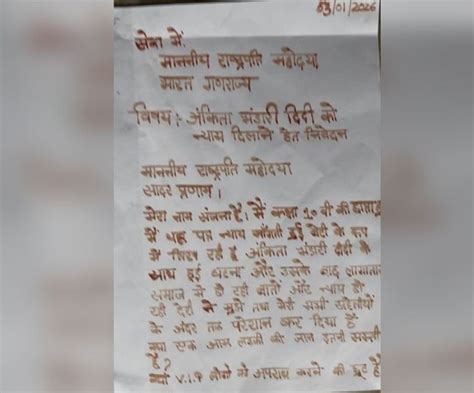 03/01/2026
सेवा में,
माननीय राष्ट्रपति महोदया,
भारत गणराज्य
विषय :- अंकिता भंडारी दिदी को
न्याय दिलाने हेतु निवेदन
माननीय राष्ट्रपति महोदया
सादर प्रणाम।
मेरा नाम संजना है। मैं कक्षा 10 वी की छात्रा हूँ
मैं यह पत्र न्याय माँगती हुई बेटी के रूप
में लिख रही हूँ अंकिता भंडारी दीदी के
साथ हुई घटना और उसके बाद लगातार
समाज में हो रही बातों और न्याय हो
रही देरी ने मुझे तथा मेरी सभी सहेलीयों
के अंदर तक परेशान कर दिया है
क्या एक आम लड़की की जान इतनी सस्ती
है?
क्या V.I.P लोगों को अपराध करने की छूट है